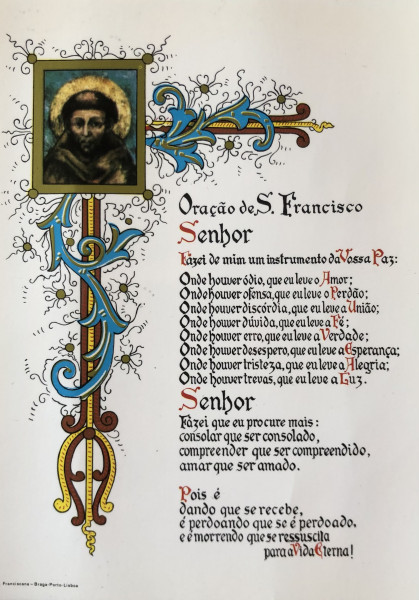 Oração de S. Francisco
Senhor
Fazei de mim um instrumento da Vossa Paz:
Onde houver ódio, que eu leve o Amor;
Onde houver ofensa, que eu leve o Perdão;
Onde houver discórdia, que eu leve a União;
Onde houver dúvida, que eu leve a Fé;
Onde houver erro, que eu leve a Verdade;
Onde houver desespero, que eu leve a Esperança;
Onde houver tristeza, que eu leve a Alegria;
Onde houver trevas, que eu leve a Luz.
Senhor
Fazei que eu procure mais:
consolar que ser consolado,
compreender que ser compreendido,
amar que ser amado.
Pois é
dando que se recebe,
é perdoando que se é perdoado,
e é morrendo que se ressuscita
para a Vida Eterna!
Franciscana - Braga-Porto-Lisboa